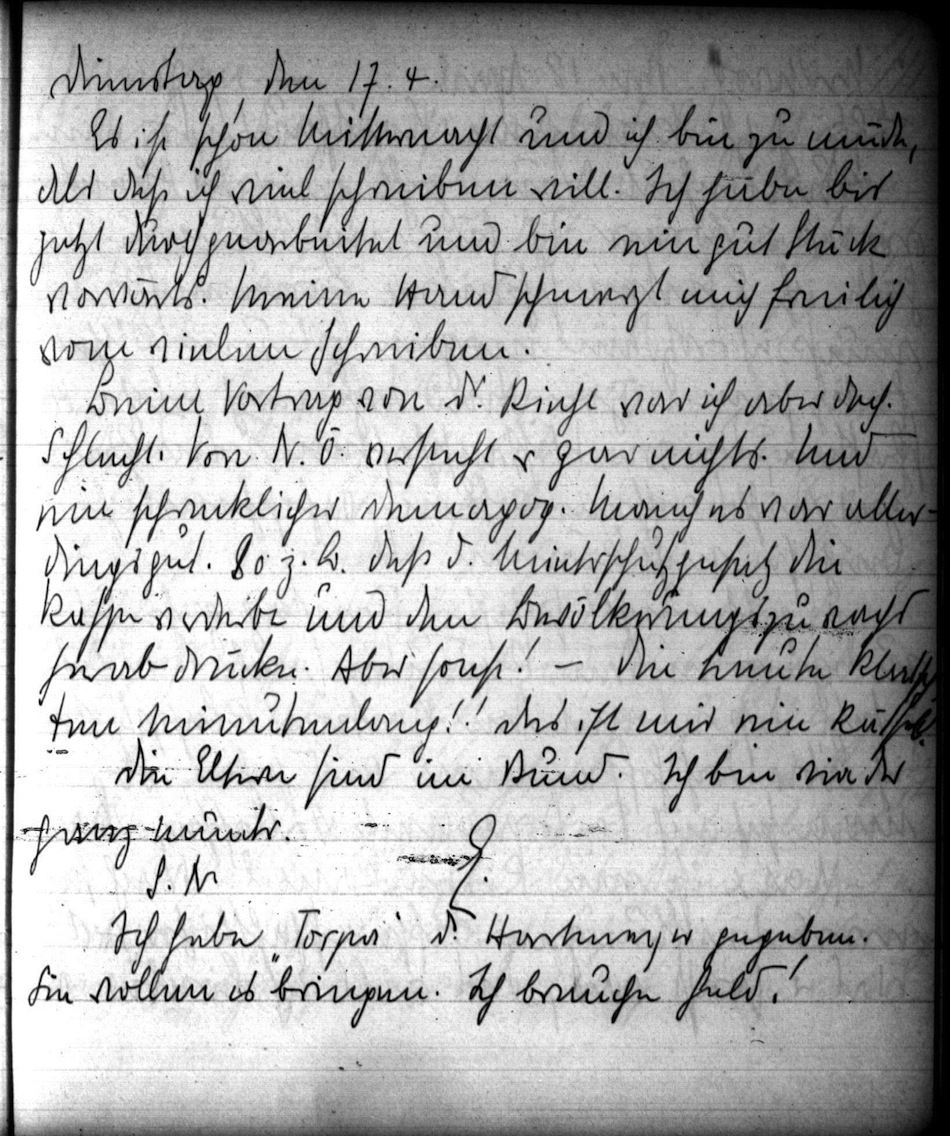 Dienstag den 17.4.
Es ist schon Mitternacht und ich bin zu müde,
als daß ich viel schreiben will. Ich habe bis
jetzt durchgearbeitet und bin ein gut Stück
vorwärts. Meine Hand schmerzt mich freilich
vom vielen Schreiben.
Beim Vortrag von Dr. Riehl war ich aber doch.
Schlecht. Von N.Ö. versteht er gar nichts. Und
ein schrecklicher Demagog. Manches war aller-
dings gut. So z.B. daß d. Mieterschutzgesetz die
Rasse verderbe und den Bevölkerungszuwachs
herabdrücke. Aber sonst! – Die Leute klatsch
ten minutenlang!! Das ist mir ein Rätsel.
Die Eltern sind im Bund. Ich bin wieder
ganz munter.
G.N
Ich habe "Torga" d. Hartmeyer gegeben.
Sie wollen es bringen. Ich brauche Geld!